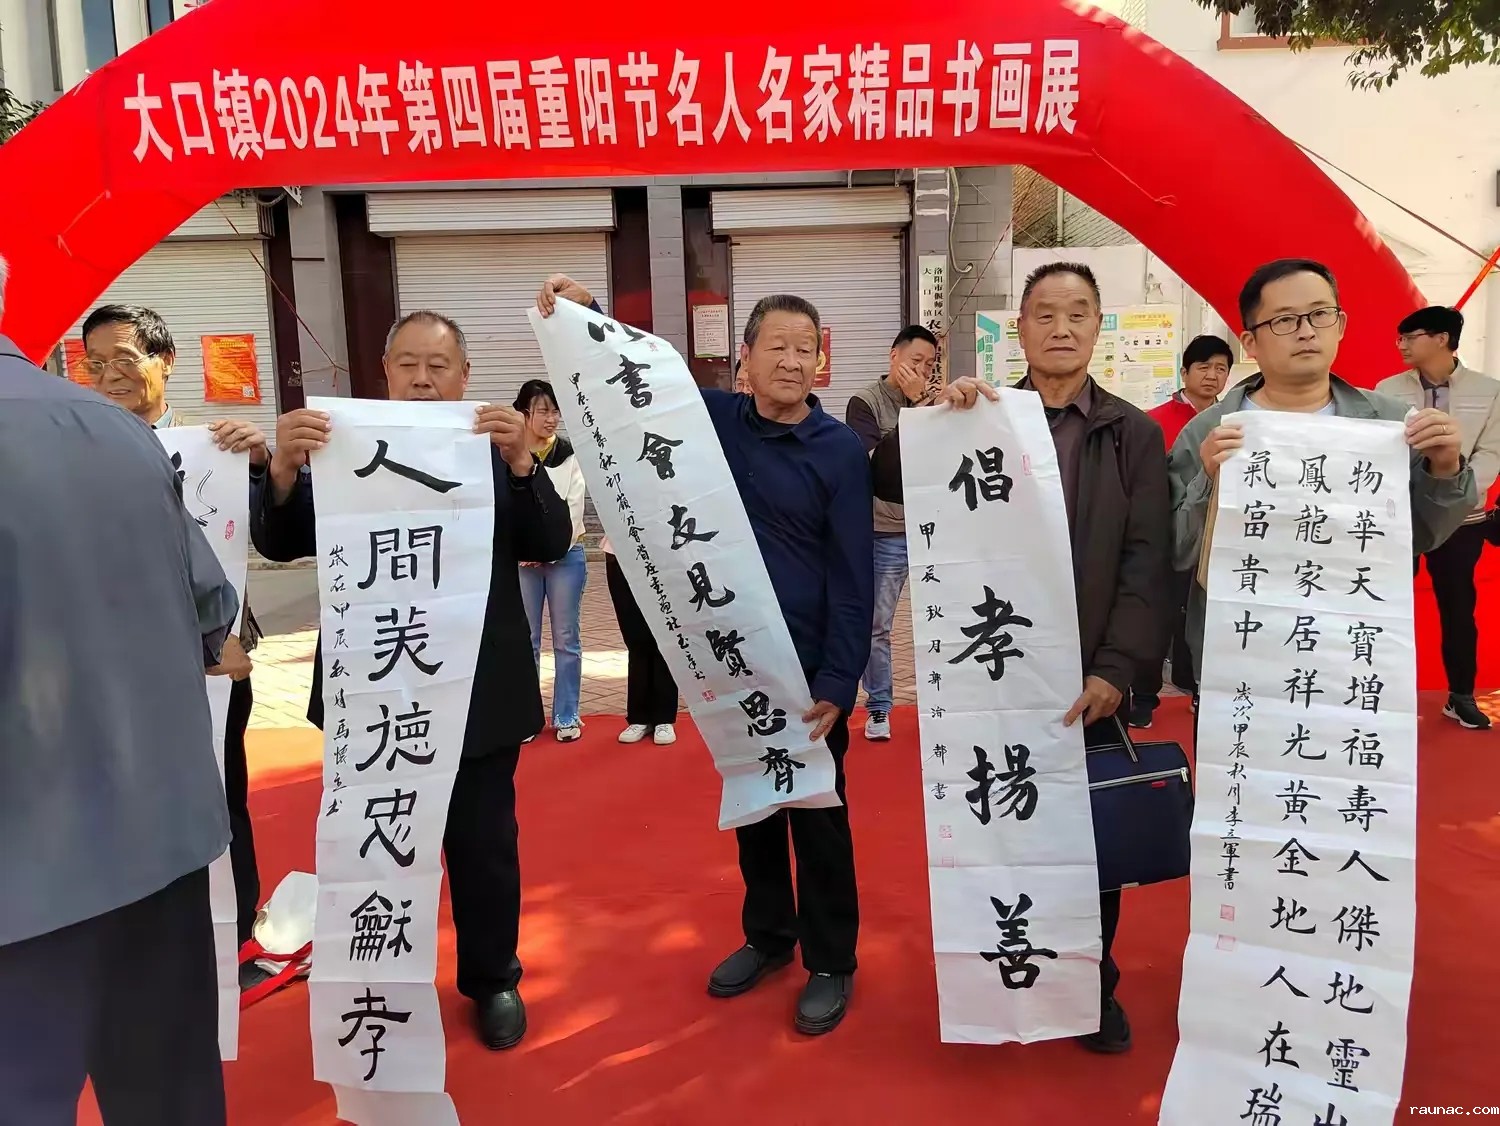 大口镇2024年第四届重阳节名人名家精品书画展
洛阳市偃师区
大口镇
人間美德忠龢孝
歲在甲辰秋月馬懷立书
以書會友見賢思齊
倡孝揚善
甲辰秋月
書
物華天寶增福壽人傑地靈
鳳龍家居祥光黃金地人在瑞
氣富貴中
歲次甲辰秋月李立軍書
健康教育
raunac.com